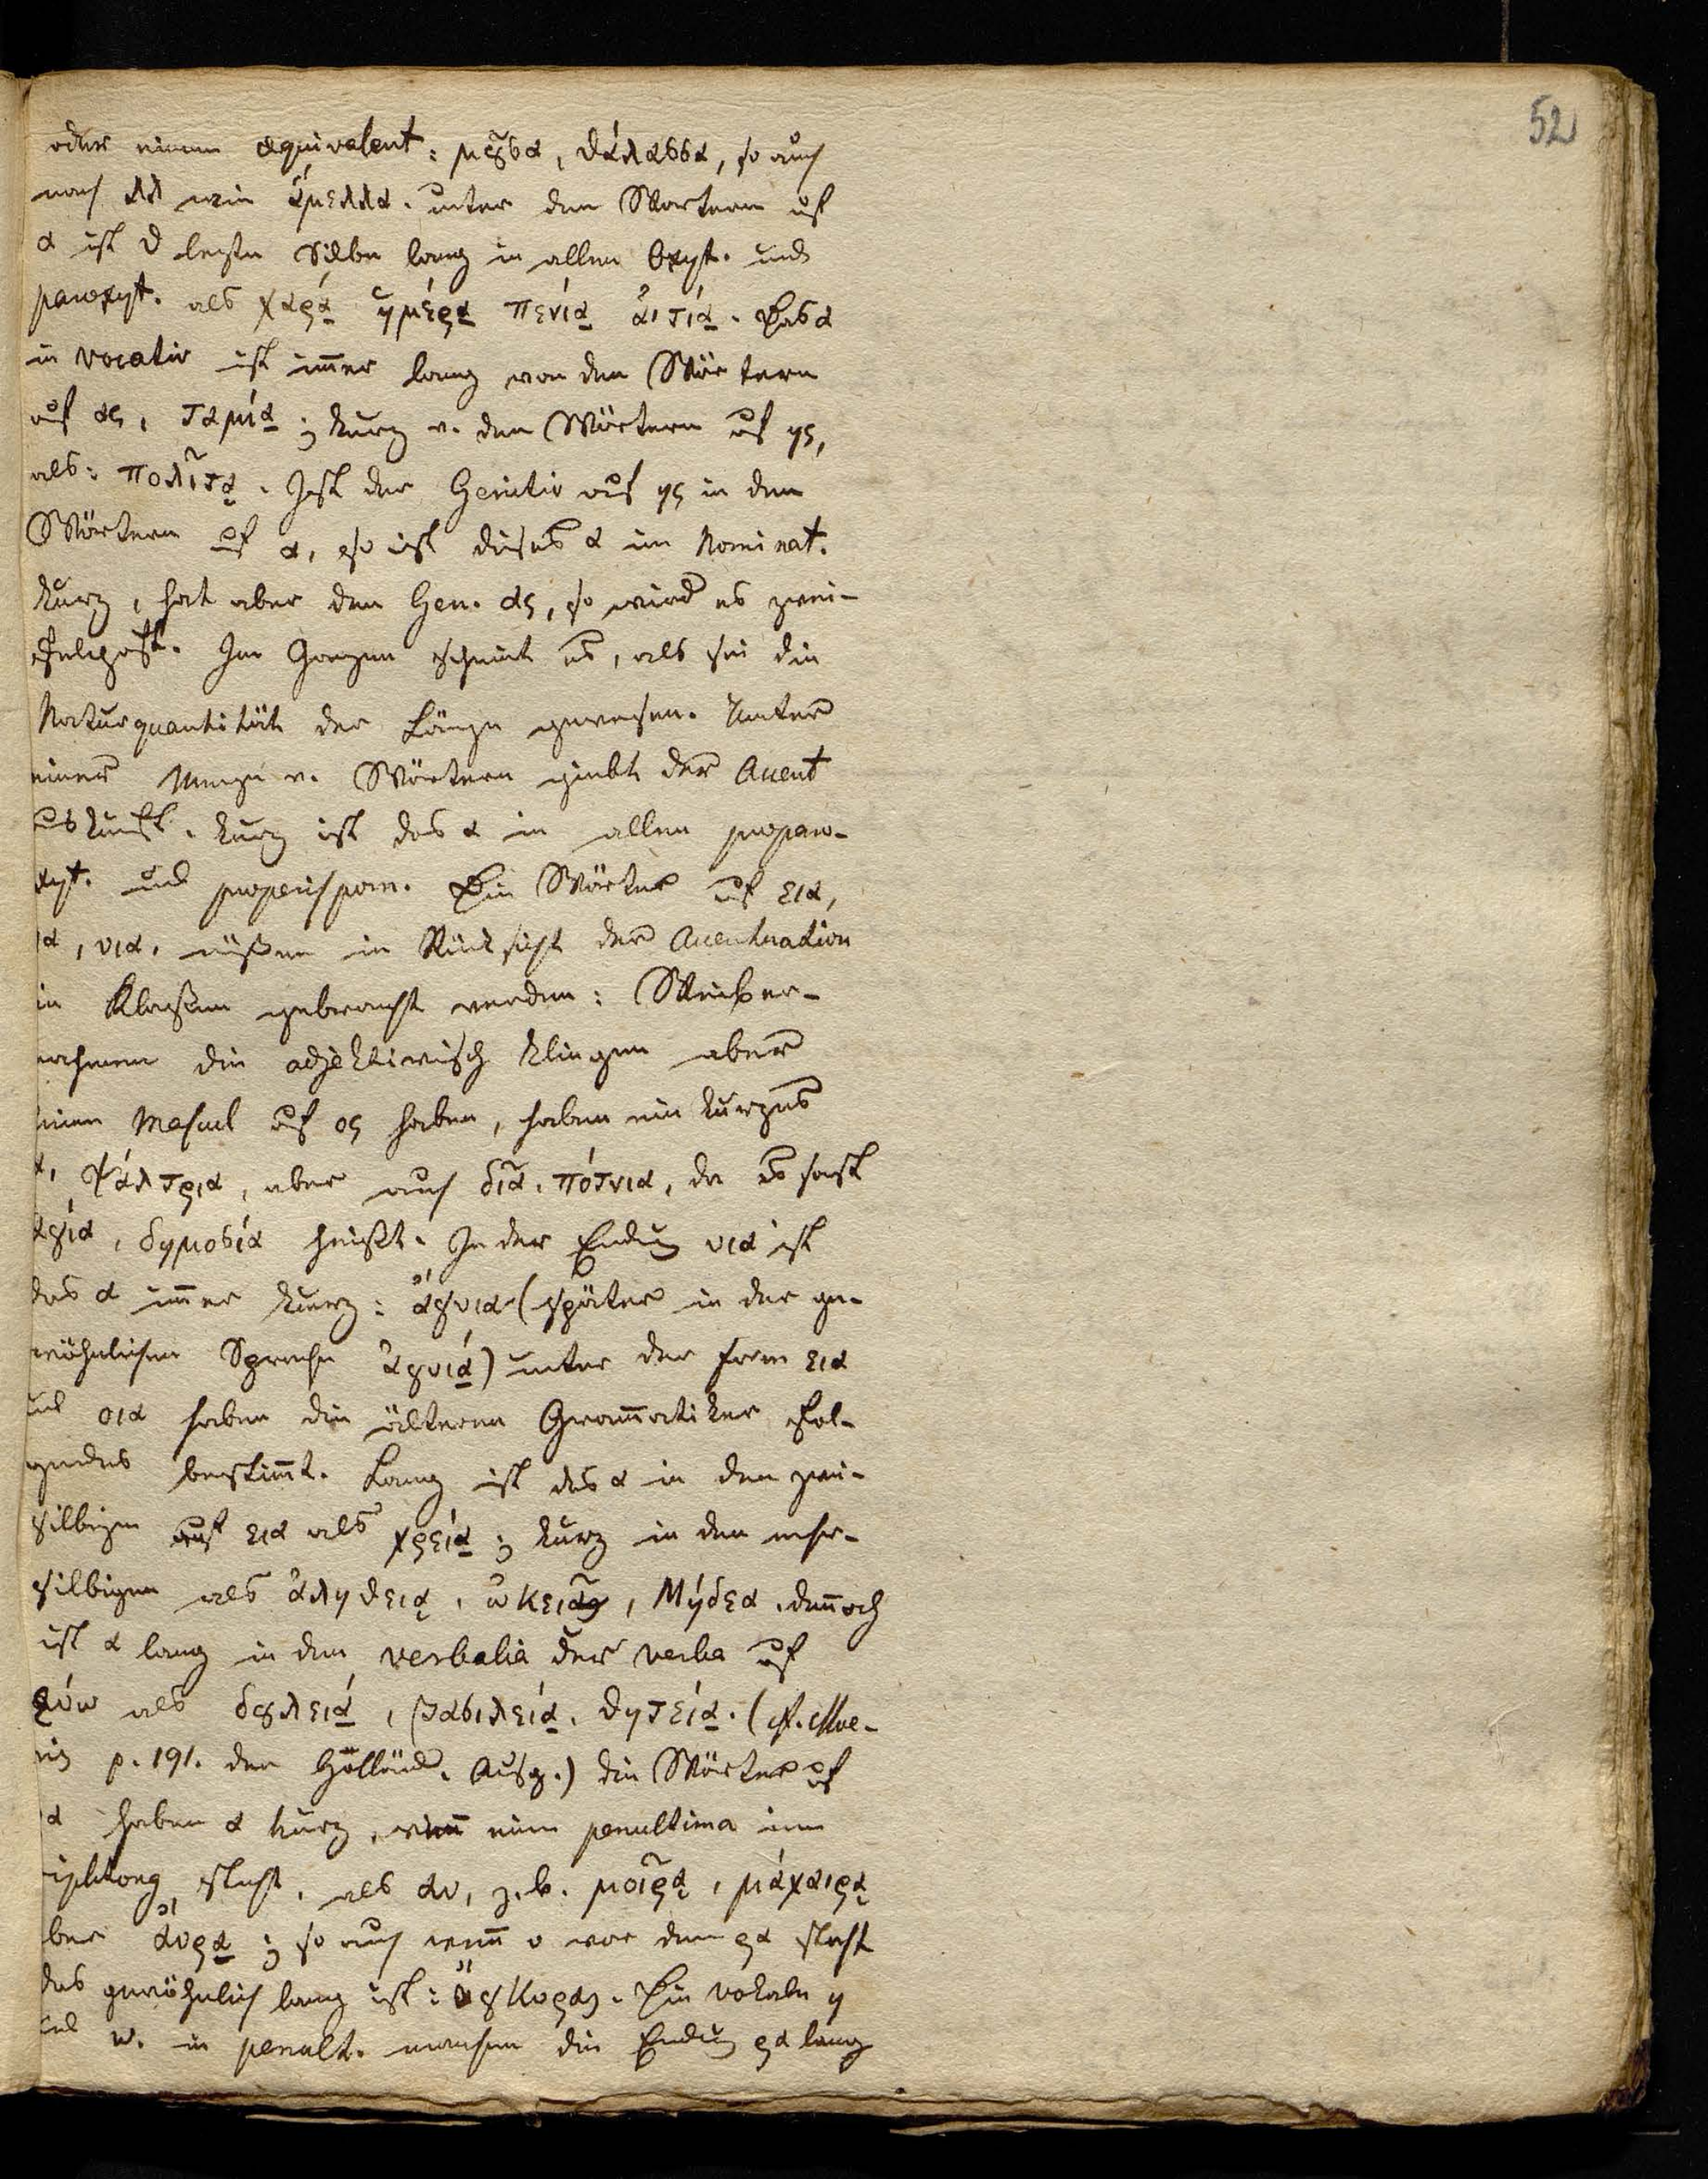 52
oder einem æquivalent: μȣ̃σα, θάλασσα, so auch
nach λλ wie ἅμελλα. unter den Wörtern auf
α ist d letzte Silbe lang in allen Oxyt. und
paroxyt. als χαρά ἡμέρα πενία ἀιτία. Das α
im vocativ ist im̄er lang von den Wörtern
auf ας, ταμία; kurz v. den Wörtern auf ης,
als: πολῖτα. Ist der Genitiv auf ης in den
Wörtern auf α, so ist dieses α im Nominat.
kurz, hat aber den Gen. ας, so wird es zwei-
felhaft. Im Ganzen scheint es, als sei die
Naturquantität der Länge gewesen. Unter
einer Menge v. Wörtern giebt der Accent
Auskunft. kurz ist das α in allen propero-
xyt. und properispom. Die Wörter auf εια,
ια, υια, müßen in Rücksicht der Accentuation
in Klaßen gebracht werden: Weiber-
nahmen die adjektivisch klingen aber
keinen Mascul auf ος haben, haben ein kurzes
α, ψάλτρια, aber auch δῖα, πότνια, da es sonst
ἁγία, δημοσία heißt. In der Endung υια ist
das α im̄er kurz: ἄγυια (später in der ge-
wöhnlichen Sprache ἀγυιά) unter der form εια
und οια haben die älteren Gram̄atiker fol-
gendes bestim̄t. Lang ist das α in den zwei-
silbigen auf εια als χρεία; kurz in den mehr-
silbigen als ἀληθεια, ὠκεῖα, Μήδεα. den̄och
ist α lang in den verbalia der verba auf
εύω als δȣλειά, βασιλεία, θητεία. (cf. Moe-
ris p. 191. der Holländ. Ausg.) die Wörter auf
ρα haben α kurz, wen̄ eine penultima im
Diphtong steht, als αυ, z. b. μοῖρα, μάχαιρα
aber αὔρα; so auch wen̄ υ vor dem ρα steht
das gewöhnlich lang ist: Die vokale η
und ω. in penult. machen die Endung ρα lang